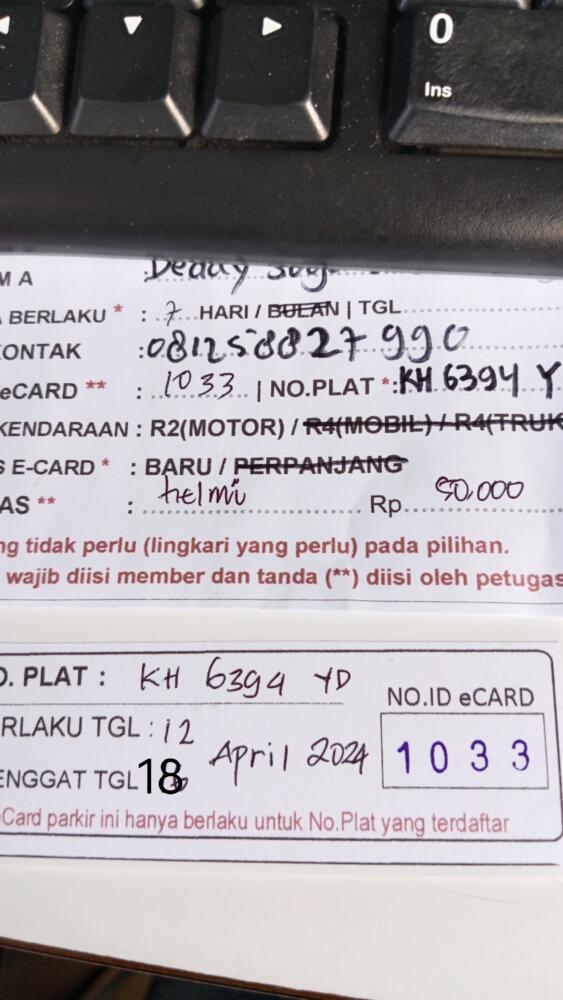 0
Ins
M A : Deddy
BERLAKU * : 7 HARI / BULAN | TGL
ONTAK : 081258827990
eCARD ** : 1033 | NO.PLAT *: KH 6394 Y
KENDARAAN : R2(MOTOR) / R4(MOBIL) / R4(TRUK
S E-CARD * : BARU / PERPANJANG
AS ** : helmi Rp 50.000
ng tidak perlu (lingkari yang perlu) pada pilihan.
wajib diisi member dan tanda (**) diisi oleh petugas
O. PLAT : KH 6394 YD
NO.ID eCARD
RLAKU TGL : 12
April 2024
1033
ENGGAT TGL 18
eCard parkir ini hanya berlaku untuk No.Plat yang terdaftar